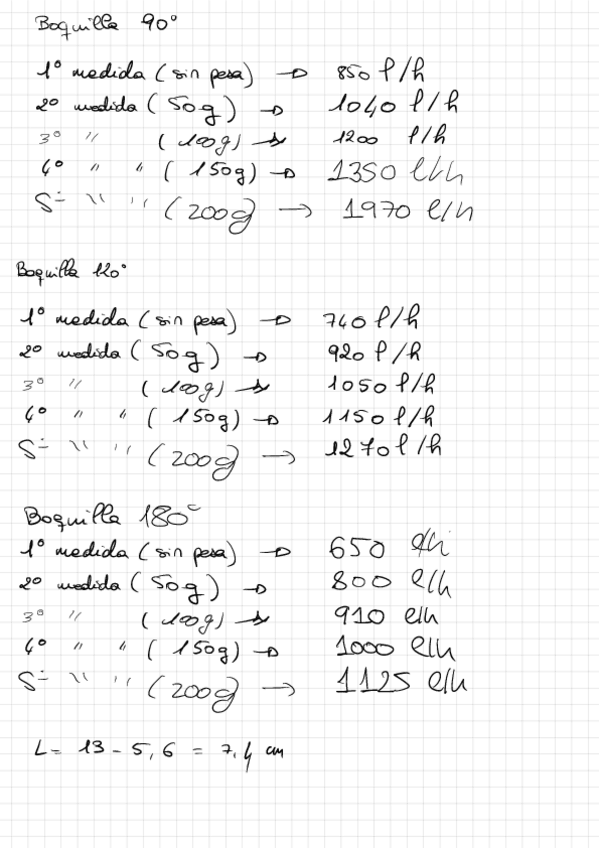 Boquilla 90°
1º medida (sin pesa) → 850 l/h
2º medida (50g) → 1040 l/h
3º " (100g) → 1200 l/h
4º " " (150g) → 1350 l/h
5º " " (200g) → 1970 l/h
Boquilla 120°
1º medida (sin pesa) → 740 l/h
2º medida (50g) → 920 l/h
3º " (100g) → 1050 l/h
4º " " (150g) → 1150 l/h
5º " " (200g) → 1270 l/h
Boquilla 180°
1º medida (sin pesa) → 650 l/h
2º medida (50g) → 800 l/h
3º " (100g) → 910 l/h
4º " " (150g) → 1000 l/h
5º " " (200g) → 1125 l/h
L = 13 - 5,6 = 7,4 cm